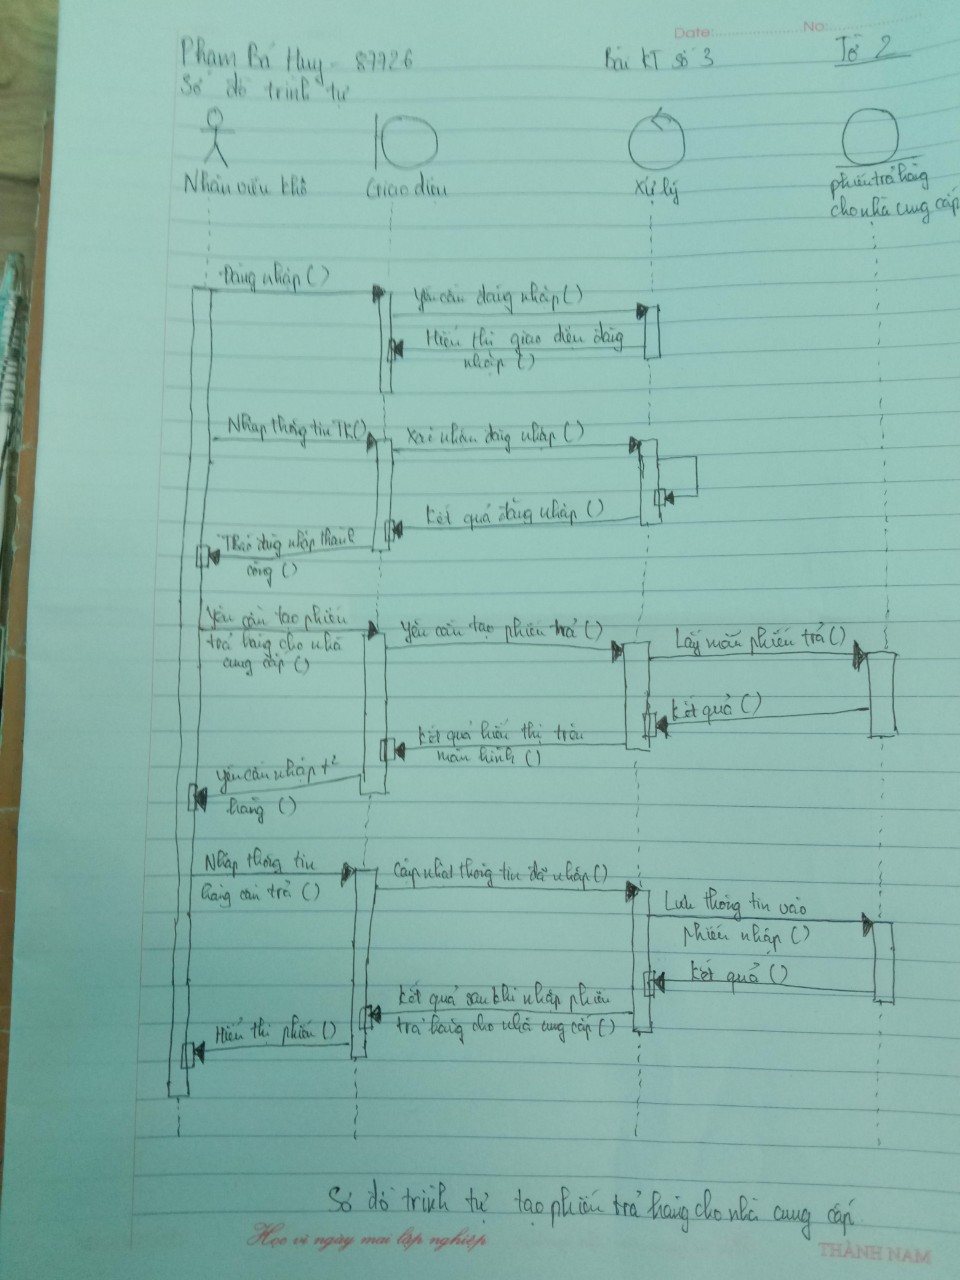 Date: No:
Phạm Bá Huy - 87726 Bài KT số 3 Tờ 2
Sơ đồ trình tự
Nhân viên kho Giao diện Xử lý phiếu trả hàng
cho nhà cung cấp
Đăng nhập ()
Yêu cầu đăng nhập ()
Hiển thị giao diện đăng
nhập ()
Nhập thông tin TK() Xác nhận đăng nhập ()
Kết quả đăng nhập ()
đăng nhập thành
công ()
Yêu cầu tạo phiếu
trả hàng cho nhà
cung cấp ()
Yêu cầu tạo phiếu trả ()
Lấy mẫu phiếu trả ()
Kết quả ()
Kết quả hiển thị trên
màn hình ()
Yêu cầu nhập t²
hàng ()
Nhập thông tin
hàng cần trả ()
Cập nhật thông tin đã nhập ()
Lưu thông tin vào
phiếu nhập ()
Kết quả ()
Kết quả sau khi nhập phiếu
trả hàng cho nhà cung cấp ()
Hiển thị phiếu ()
Sơ đồ trình tự tạo phiếu trả hàng cho nhà cung cấp
Học vì ngày mai lập nghiệp
THÀNH NAM